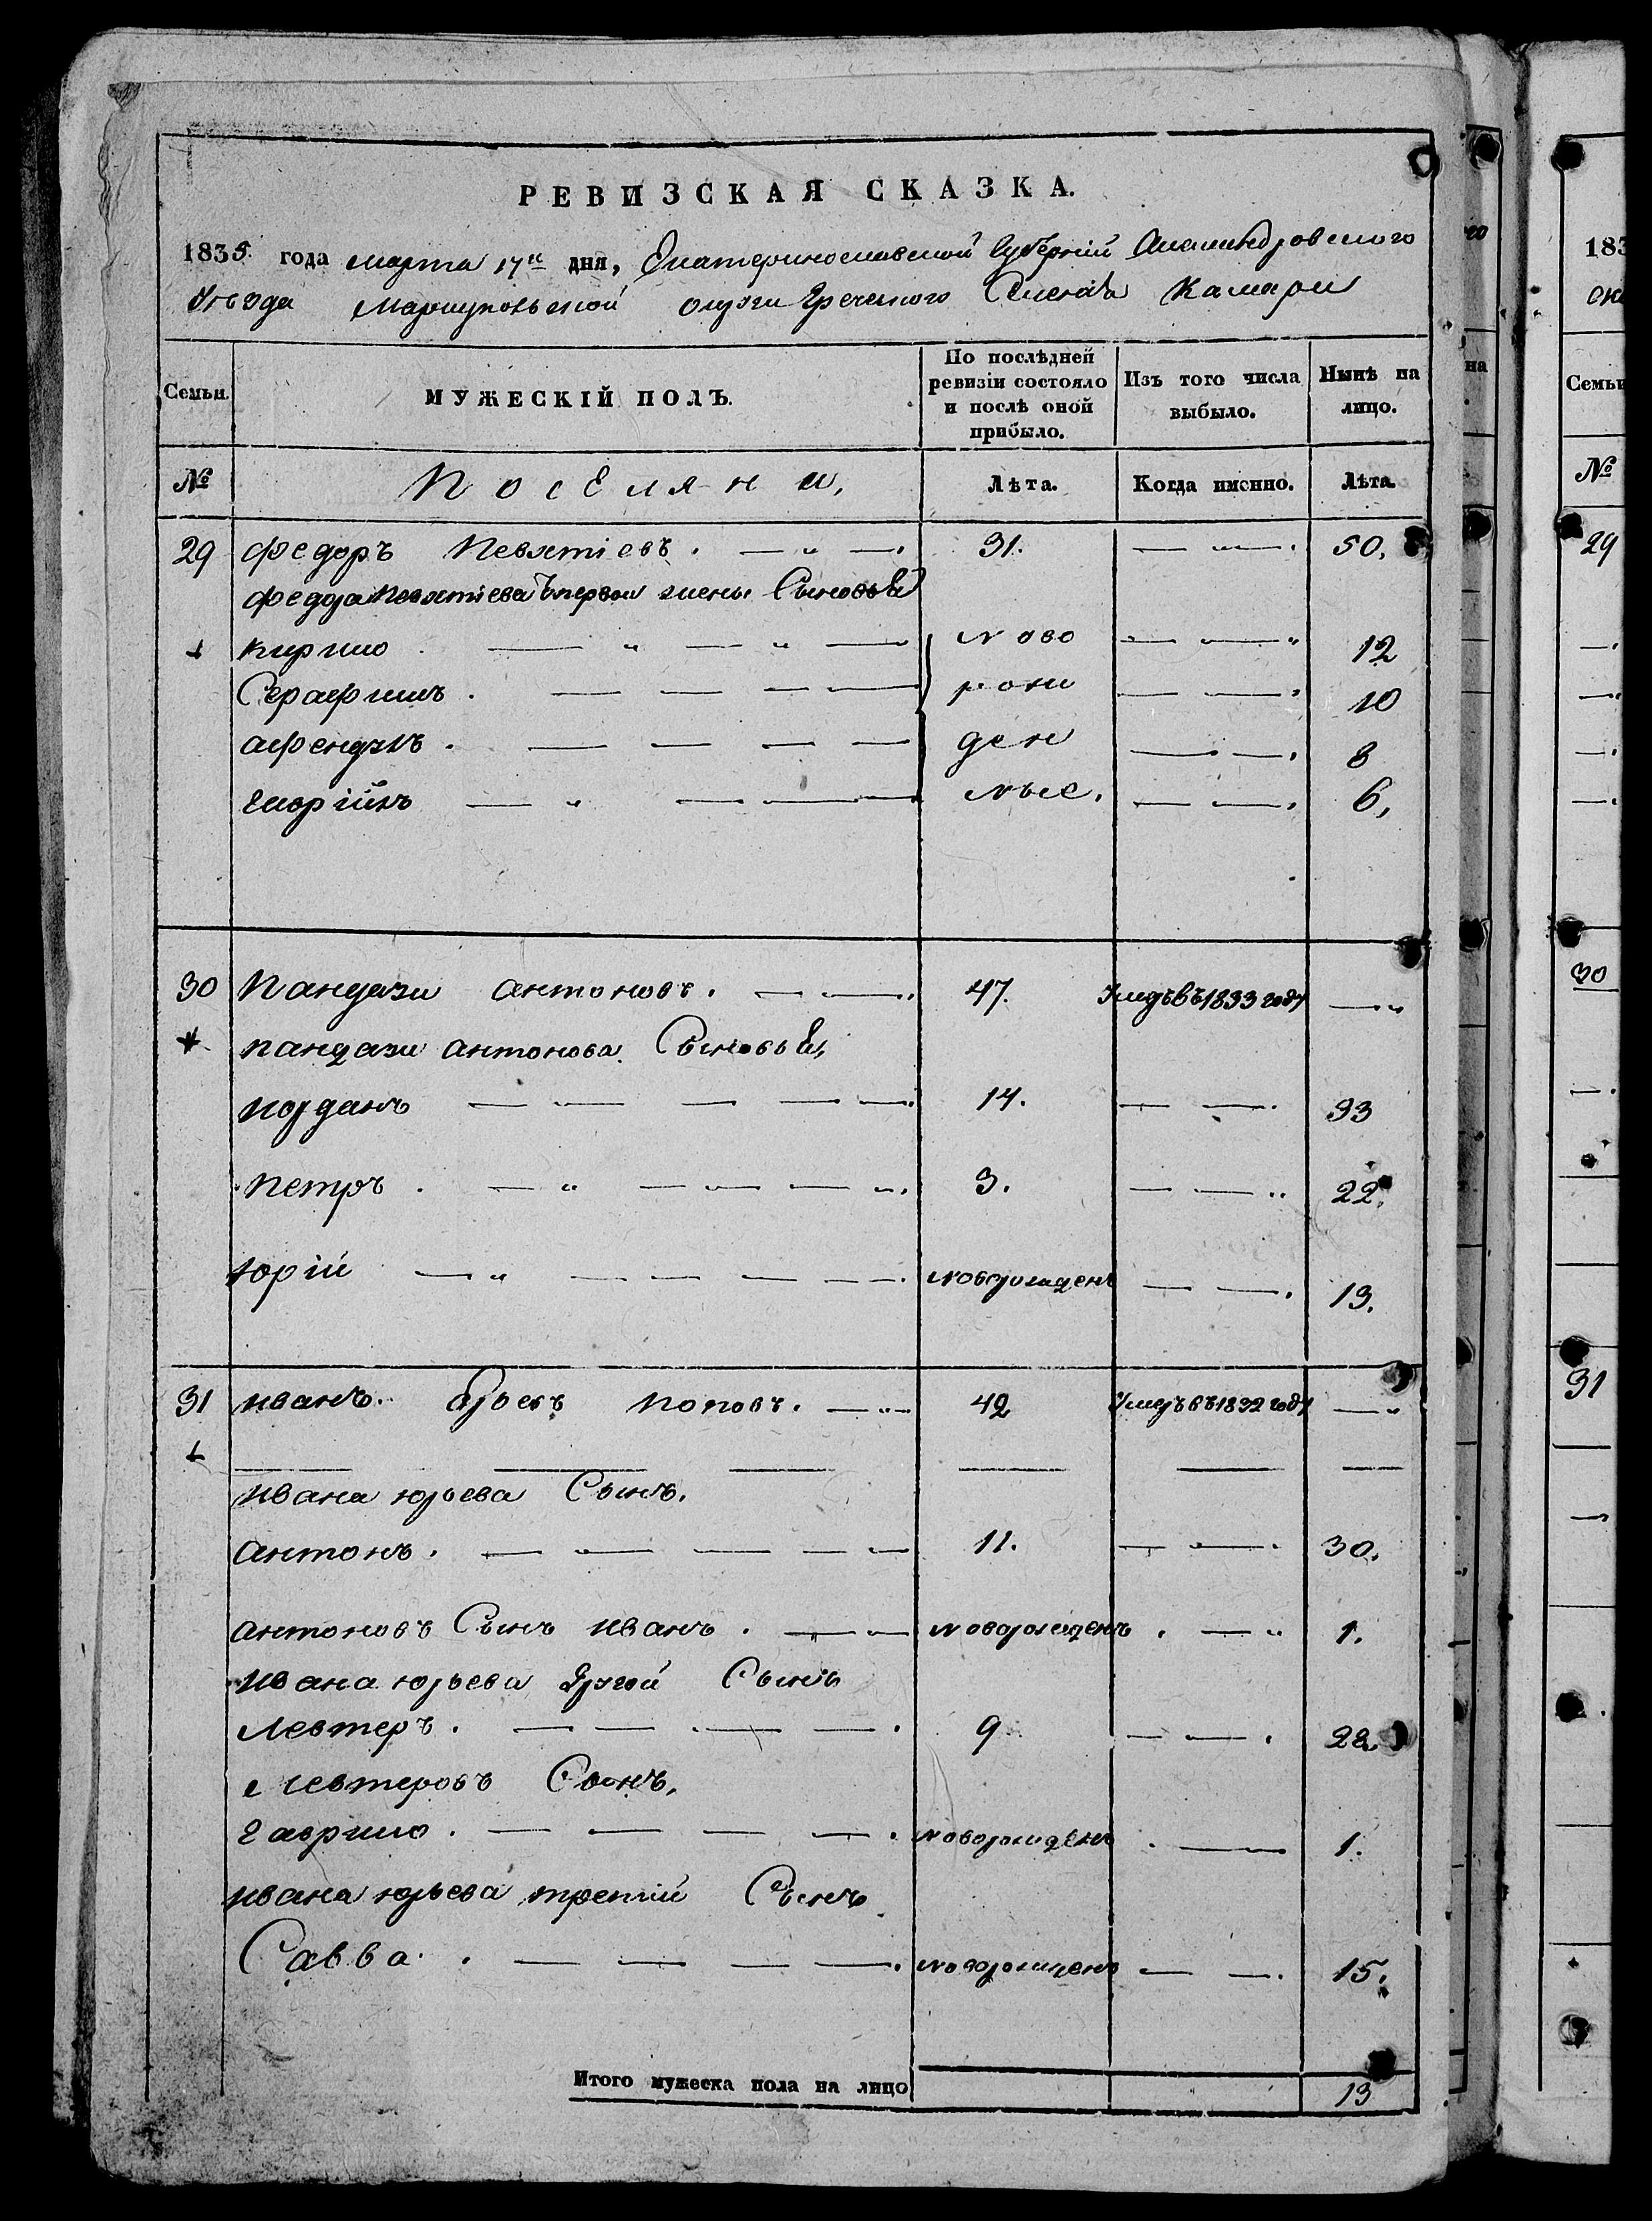 РЕВИЗСКАЯ СКАЗКА.
1835 года марта 17й дня, Екатеринославской Губерніи Александровского
Уезда Мариупольской округи Греческого Селенія Камары
Семьи. МУЖЕСКІЙ ПОЛЪ. По послѣдней ревизіи состояло и послѣ оной прибыло. Изъ того числа выбыло. Нынѣ на лицо.
№ Поселяни, Лѣта. Когда именно. Лѣта.
29 Федоръ Певхтіевъ. 31. 50.
Федора Певхтіева первой жены Сыновья
Кирило Ново 12
Серафимъ. рож 10
ден 8
Гиоргій ные. 6,
30 Пандази Антоновъ. 47. Умеръ въ 1833 году
Пандази Антонова Сыновья,
Иорданъ 14. 33
Петръ. 3. 22.
Юрій Новорожденъ 13.
31 Иванъ Юрьевъ Поповъ. 42 Умеръ въ 1832 году
Ивана Юрьева Сынъ.
Антонъ. 11. 30.
Антоновъ Сынъ Иванъ. Новорожденъ. 1.
Ивана Юрьева Другой Сынъ
Левтеръ. 9 28
Левтеровъ Сынъ.
Гаврило. Новорожденъ. 1.
Ивана Юрьева третій Сынъ
Савва. Новорожденъ 15.
Итого мужеска пола на лицо 13
183
Семьи
№
29
30
31